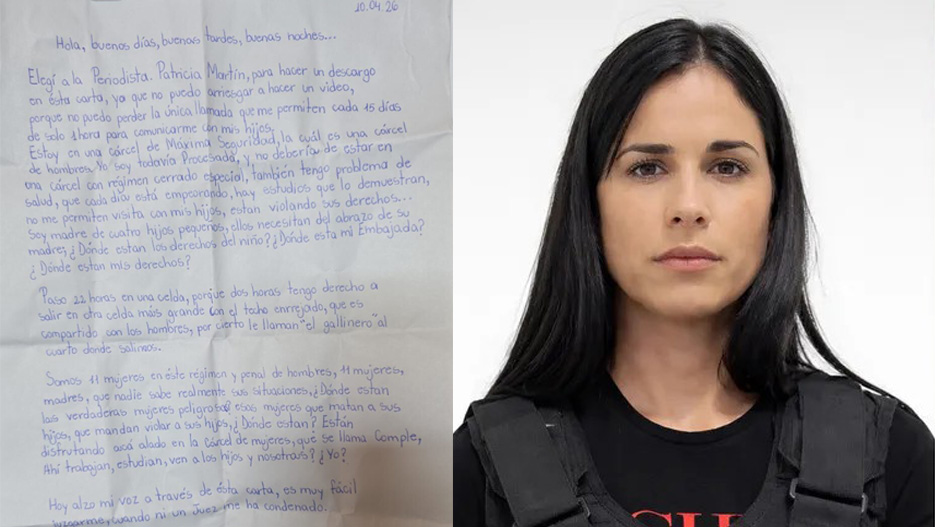 10.04.26
Hola, buenos días, buenas tardes, buenas noches...
Elegí a la Periodista. Patricia Martín, para hacer un descargo
en ésta carta, ya que no puedo arriesgar a hacer un video,
porque no puedo perder la única llamada que me permiten cada 15 días
de solo 1 hora para comunicarme con mis hijos.
Estoy en una cárcel de Máxima Seguridad, la cuál es una cárcel
de hombres. Yo soy todavía Procesada, y no debería de estar en
una cárcel con régimen cerrado especial, también tengo problema de
salud, que cada día está empeorando, hay estudios que lo demuestran,
no me permiten visita con mis hijos, estan violando sus derechos...
Soy madre de cuatro hijos pequeños, ellos necesitan del abrazo de su
madre, ¿Dónde estan los derechos del niño? ¿Dónde esta mi Embajada?
¿Dónde estan mis derechos?
Paso 22 horas en una celda, porque dos horas tengo derecho a
salir en otra celda más grande con el techo enrrejado, que es
compartido con los hombres, por cierto le llaman "el gallinero" al
cuarto donde salimos.
Somos 11 mujeres en éste régimen y penal de hombres, 11 mujeres,
madres, que nadie sabe realmente sus situaciones, ¿Dónde estan
las verdaderas mujeres peligrosas? esas mujeres que matan a sus
hijos, que mandan violar a sus hijos, ¿Dónde estan? Están
disfrutando acá alado en la cárcel de mujeres, qué se llama Comple,
Ahí trabajan, estudian, ven a los hijos y nosotras? ¿Yo?
Hoy alzo mi voz a través de ésta carta, es muy fácil
juzgarme, cuando ni un Juez me ha condenado.